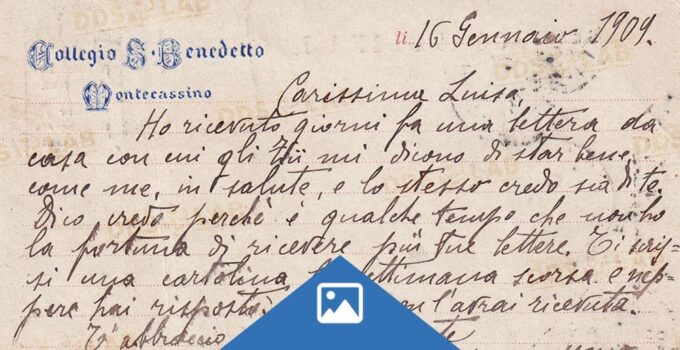 Collegio S. Benedetto
Montecassino
li 16 Gennaio 1909.
Carissima Luisa,
Ho ricevuto giorni fa una lettera da
casa con cui gli Zii mi dicono di star bene,
come me, in salute, e lo stesso credo sia di te.
Dico credo perchè è qualche tempo che non ho
la fortuna di ricevere più tue lettere. Ti scris-
si una cartolina settimana scorsa e nep-
pure hai risposto: l'avrai ricevuta.
T'abbraccio